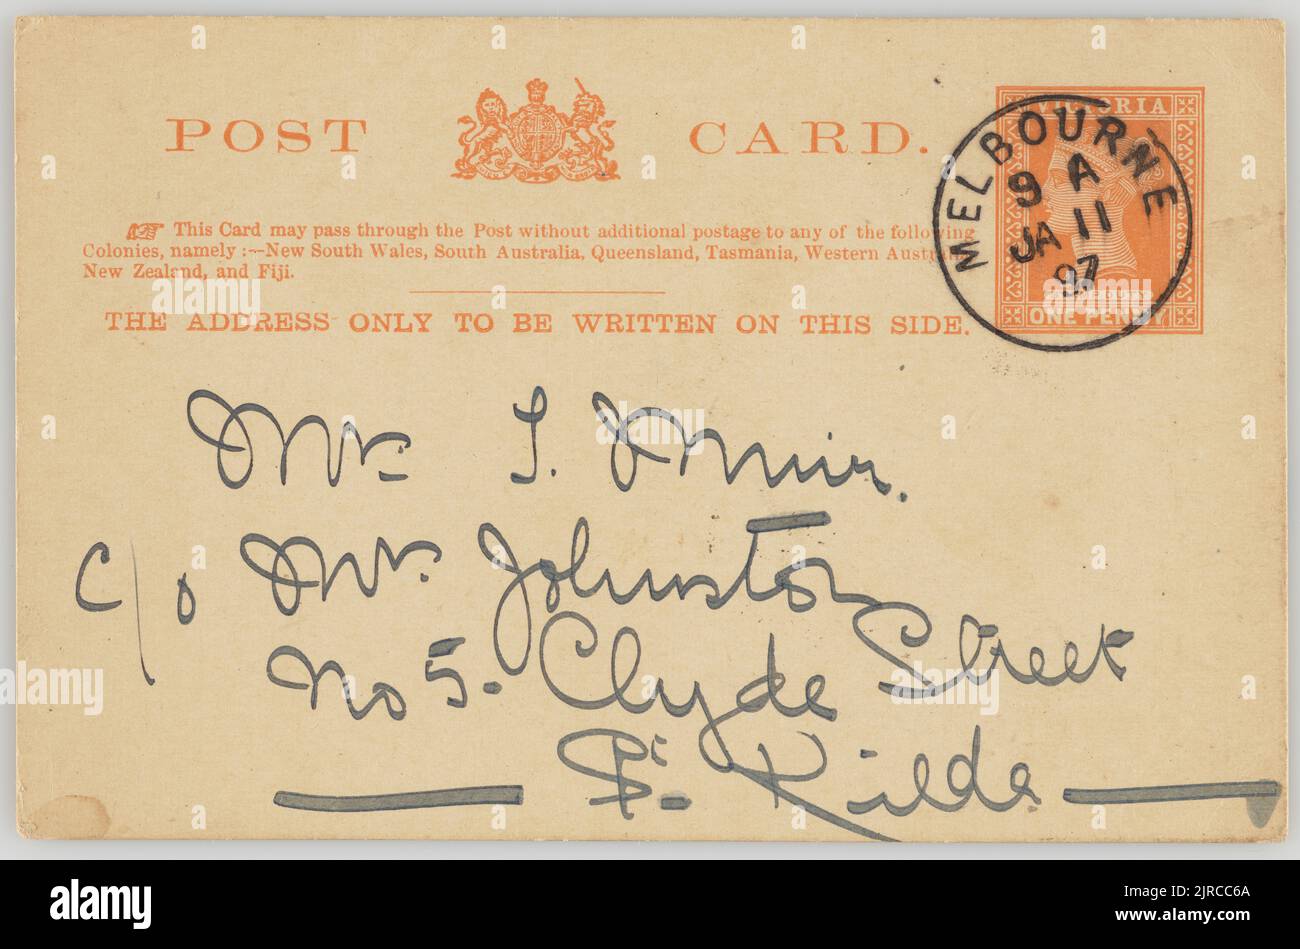 POST CARD.
This Card may pass through the Post without additional postage to any of the following
Colonies, namely :—New South Wales, South Australia, Queensland, Tasmania, Western Australia,
New Zealand, and Fiji.
THE ADDRESS ONLY TO BE WRITTEN ON THIS SIDE.
VICTORIA
ONE PENNY
MELBOURNE
9 A
JA 11
97
Mr. T. Muir.
c/o Mr. Johnston
No 5. Clyde Street
St. Kilda
alamy
Image ID: 2JRCC6A
www.alamy.com